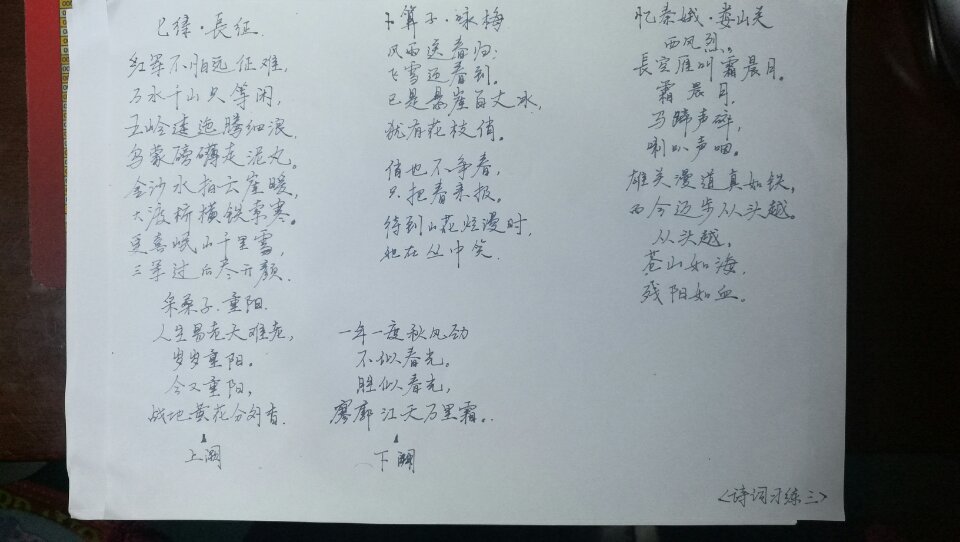 七律·長征
红军不怕远征难，
万水千山只等闲，
五岭逶迤腾细浪，
乌蒙磅礴走泥丸。
金沙水拍云崖暖，
大渡桥横铁索寒。
更喜岷山千里雪，
三军过后尽开颜.
采桑子.重阳.
人生易老天难老，
岁岁重阳。
今又重阳，
战地黄花分外香.
上阕
一年一度秋风劲
不似春光。
胜似春光，
廖廓江天万里霜。
下阕
卜算子·咏梅
风雨送春归；
飞雪迎春到。
已是悬崖百丈冰，
犹有花枝俏。
俏也不争春，
只把春来报。
待到山花烂漫时，
她在丛中笑.
忆秦娥·娄山关
西风烈。
長空雁叫霜晨月。
霜晨月，
马蹄声碎，
喇叭声咽。
雄关漫道真如铁，
而今迈步从头越。
从头越，
苍山如海，
残阳如血。
<诗词习练三>